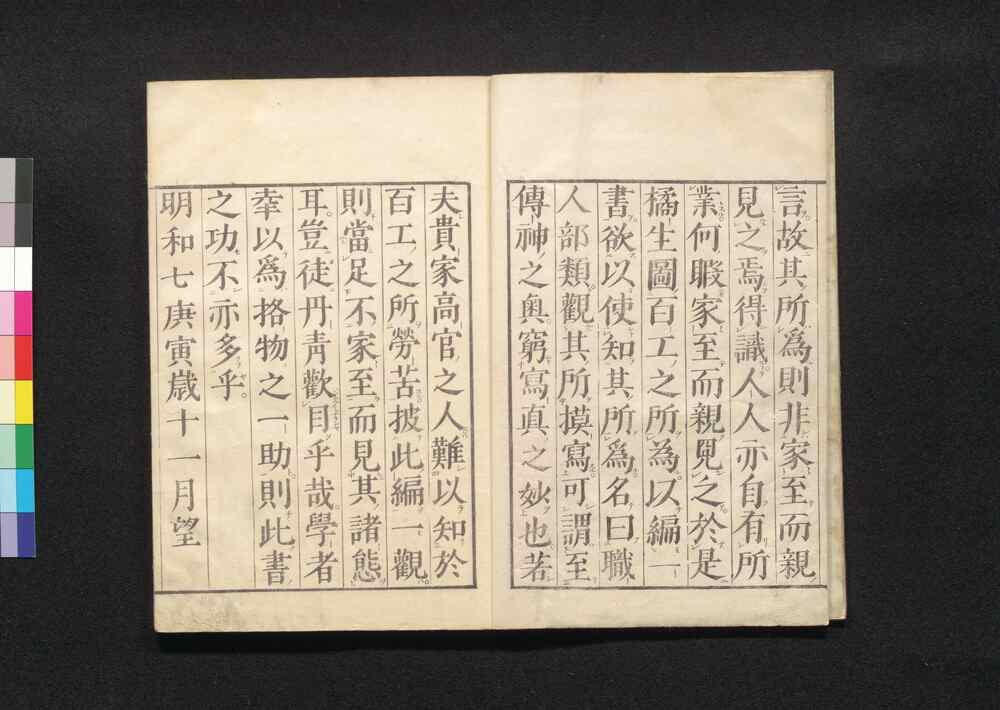 言故其所爲則非家至而親
見之焉得識人人亦自有所
業何暇家至而親見之於是
橘生圖百工之所為以編一
書欲以使知其所爲名曰職
人部類觀其所摸寫可謂至
傳神之奥窮寫真之妙也若
夫貴家高官之人難以知於
百工之所勞苦披此編一觀
則當足不家至而見其諸態
耳豈徒丹青歡目乎哉學者
幸以爲挌物之一助則此書
之功不亦多乎
明和七庚寅歲十一月望